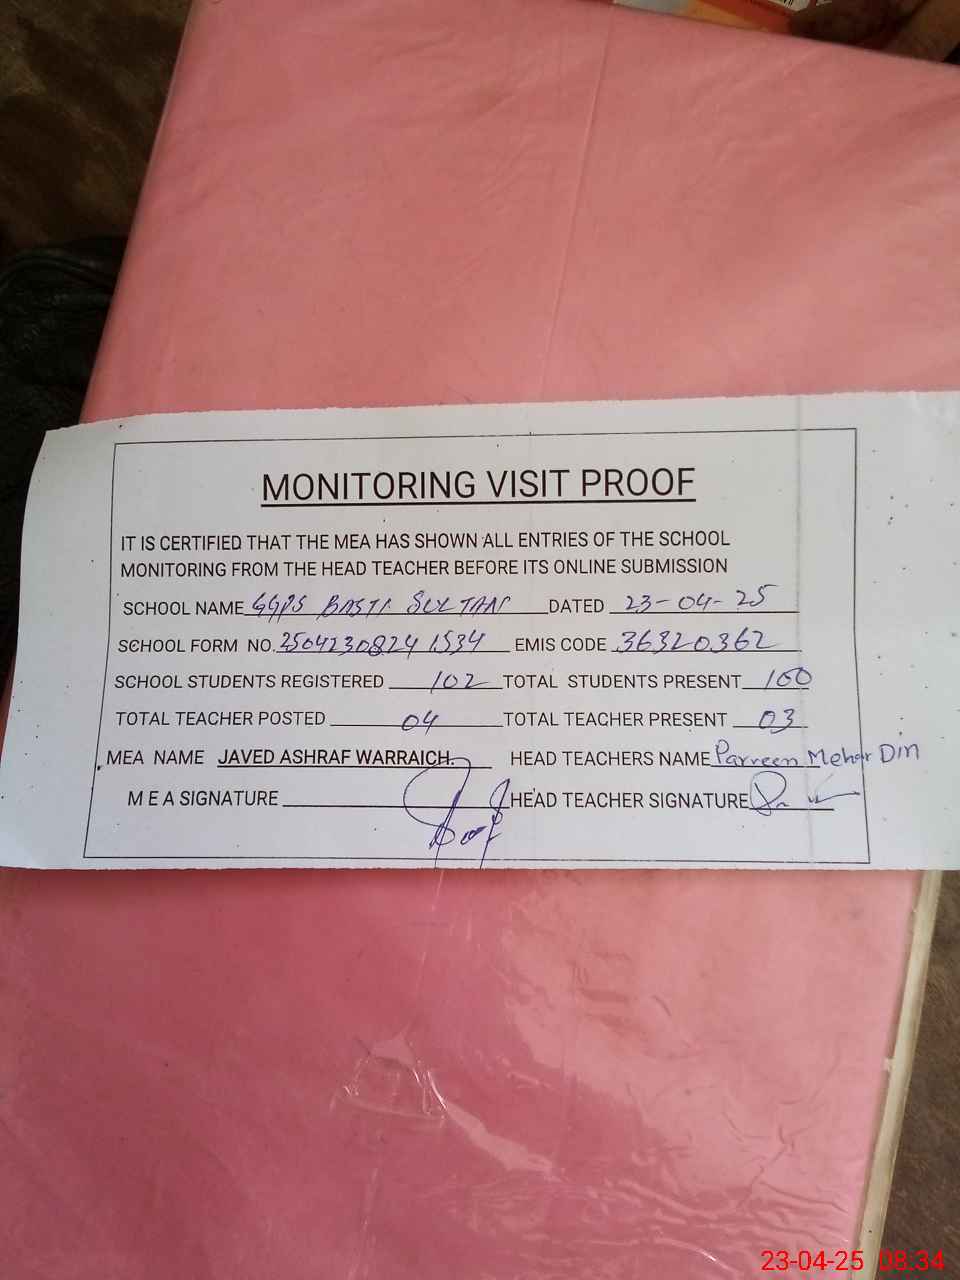 MONITORING VISIT PROOF
IT IS CERTIFIED THAT THE MEA HAS SHOWN ALL ENTRIES OF THE SCHOOL
MONITORING FROM THE HEAD TEACHER BEFORE ITS ONLINE SUBMISSION
SCHOOL NAME GGPS BASTI SULTAN DATED 23-04-25
SCHOOL FORM NO. 25042308241534 EMIS CODE 36320362
SCHOOL STUDENTS REGISTERED 102 TOTAL STUDENTS PRESENT 100
TOTAL TEACHER POSTED 04 TOTAL TEACHER PRESENT 03
MEA NAME JAVED ASHRAF WARRAICH. HEAD TEACHERS NAME Parveen Mehar Din
M E A SIGNATURE HEAD TEACHER SIGNATURE
23-04-25 08:34